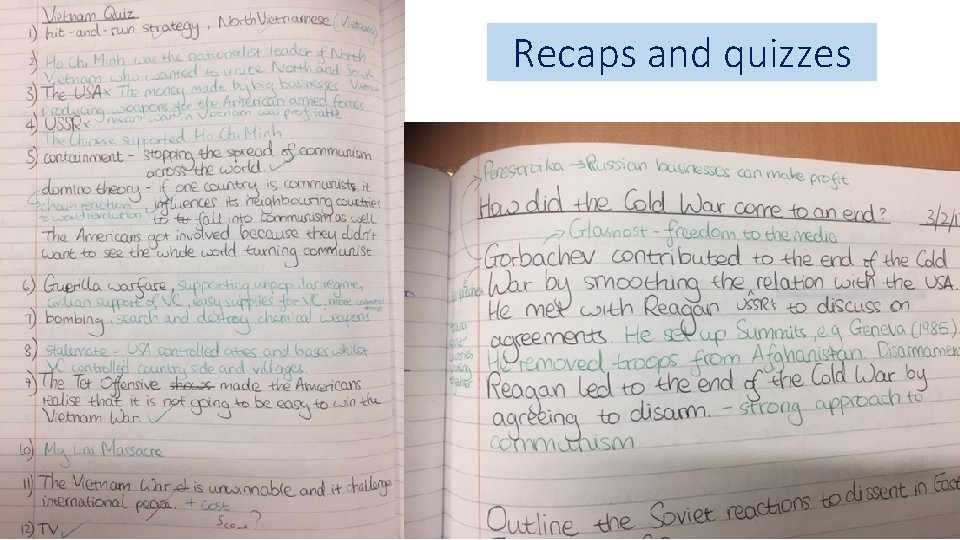 Recaps and quizzes
Vietnam Quiz
1) hit-and-run strategy, North Vietnamese (Vietcong)
2) Ho Chi Minh was the nationalist leader of North
Vietnam who wanted to unite North and South
Vietnam
3) The USA x The money made by big businesses
producing weapons for the American armed forces
4) USSR x meant war in Vietnam was profitable
The Chinese supported Ho Chi Minh
5) containment - stopping the spread of communism
across the world.
domino theory - if one country is communists, it
chain reaction influences its neighbouring countries
to world revolution to fall into communism as well.
The Americans got involved because they didn't
want to see the whole world turning communist.
6) Guerilla warfare, supporting unpopular regime,
civilian support of VC, easy supplies for VC, more
7) bombing, search and destroy, chemical weapons
8) stalemate - USA controlled cities and bases whilst
VC controlled country side and villages.
9) The Tet Offensive shows made the Americans
realise that it is not going to be easy to win the
Vietnam War.
10) My Lai Massacre
11) The Vietnam War is unwinnable and it challenge
international peace. + cost
12) TV
Score?
Perestroika → Russian businesses can make profit
How did the Cold War come to an end? 3/2/1
→ Glasnost - freedom to the media
Gorbachev contributed to the end of the Cold
War by smoothing the USSR's relation with the USA.
He met with Reagan to discuss on
agreements. He set up Summits, e.g. Geneva (1985).
He removed troops from Afghanistan. Disarmament
Reagan led to the end of the Cold War by
agreeing to disarm. - strong approach to
communism
Outline the Soviet reactions to dissent in East